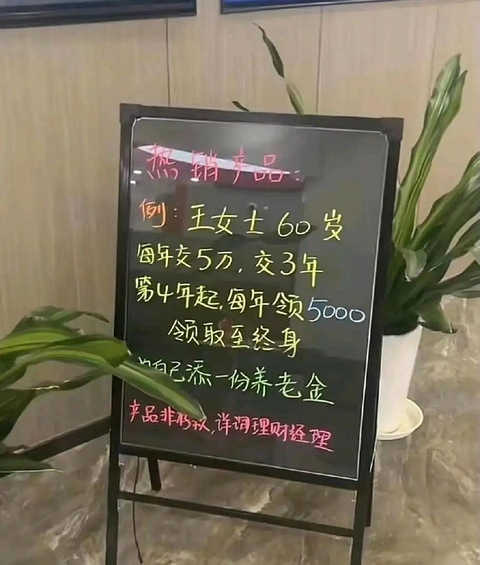 热销产品:
例:王女士60岁
每年交5万,交3年
第4年起,每年领5000
领取至终身
自己添一份养老金
产品非,详询理财经理